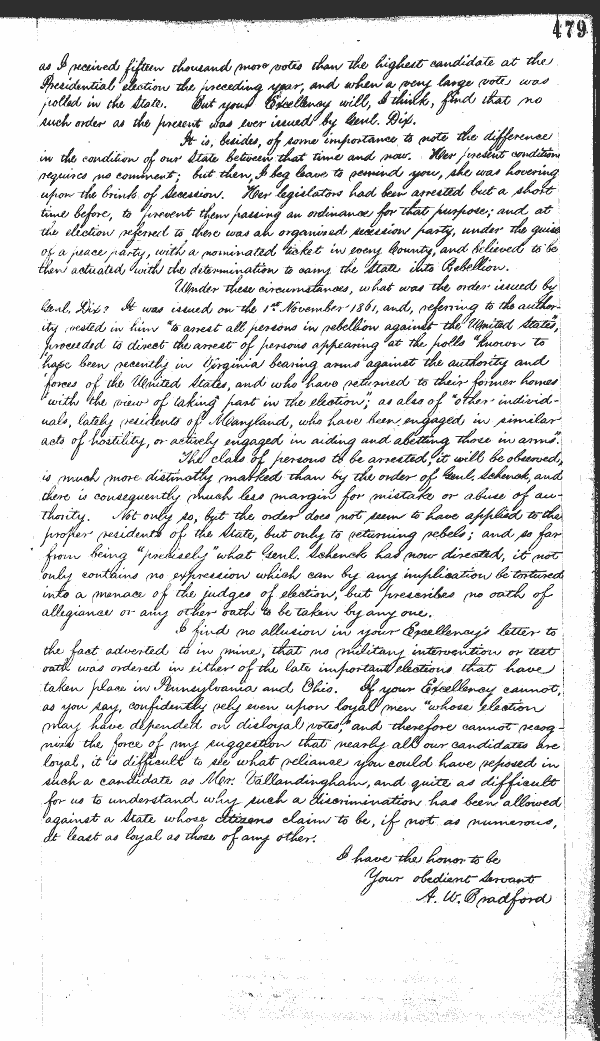 479
as I received fifteen thousand more votes than the highest candidate at the
Presidential election the preceding year, and when a very large vote was
polled in the State. But your Excellency will, I think, find that no
such order as the present was ever issued by Genl. Dix.
It is, besides, of some importance to note the difference
in the condition of our State between that time and now. Her present condition
requires no comment; but then, I beg leave to remind you, she was hovering
upon the brink of Secession. Her legislators had been arrested but a short
time before, to prevent them passing an ordinance for that purpose; and at
the election referred to there was an organised secession party, under the guise
of a peace party, with a nominated ticket in every County, and believed to be
then actuated with the determination to carry the State into Rebellion.
Under these circumstances, what was the order issued by
Genl. Dix? It was issued on the 1st November 1861, and, referring to the author-
ity vested in him "to arrest all persons in rebellion against the United States",
proceeded to direct the arrest of persons appearing at the polls "known to
have been recently in Virginia bearing arms against the authority and
forces of the United States, and who have returned to their former homes
with the view of taking part in the election"; as also of "other individ-
uals, lately residents of Maryland, who have been engaged in similar
acts of hostility, or actively engaged in aiding and abetting those in arms."
The class of persons to be arrested, it will be observed,
is much more distinctly marked than by the order of Genl. Schenck, and
there is consequently much less margin for mistake or abuse of au-
thority. Not only so, but the order does not seem to have applied to the
proper residents of the State, but only to returning rebels; and so far
from being "precisely" what Genl. Schenck has now directed, it not
only contains no expression which can by any implication be tortured
into a menace of the judges of election, but prescribes no oath of
allegiance or any other oath to be taken by any one.
I find no allusion in your Excellency's letter to
the fact adverted to in mine, that no military intervention or test
oath was ordered in either of the late important elections that have
taken place in Pennsylvania and Ohio. If your Excellency cannot,
as you say, confidently rely even upon loyal men "whose election
may have depended on disloyal votes," and therefore cannot recog-
nize the force of my suggestion that nearly all our candidates are
loyal, it is difficult to see what reliance you could have reposed in
such a candidate as Mr. Vallandingham, and quite as difficult
for us to understand why such a discrimination has been allowed
against a State whose citizens claim to be, if not as numerous,
at least as loyal as those of any other.
I have the honor to be
Your obedient servant
A. W. Bradford